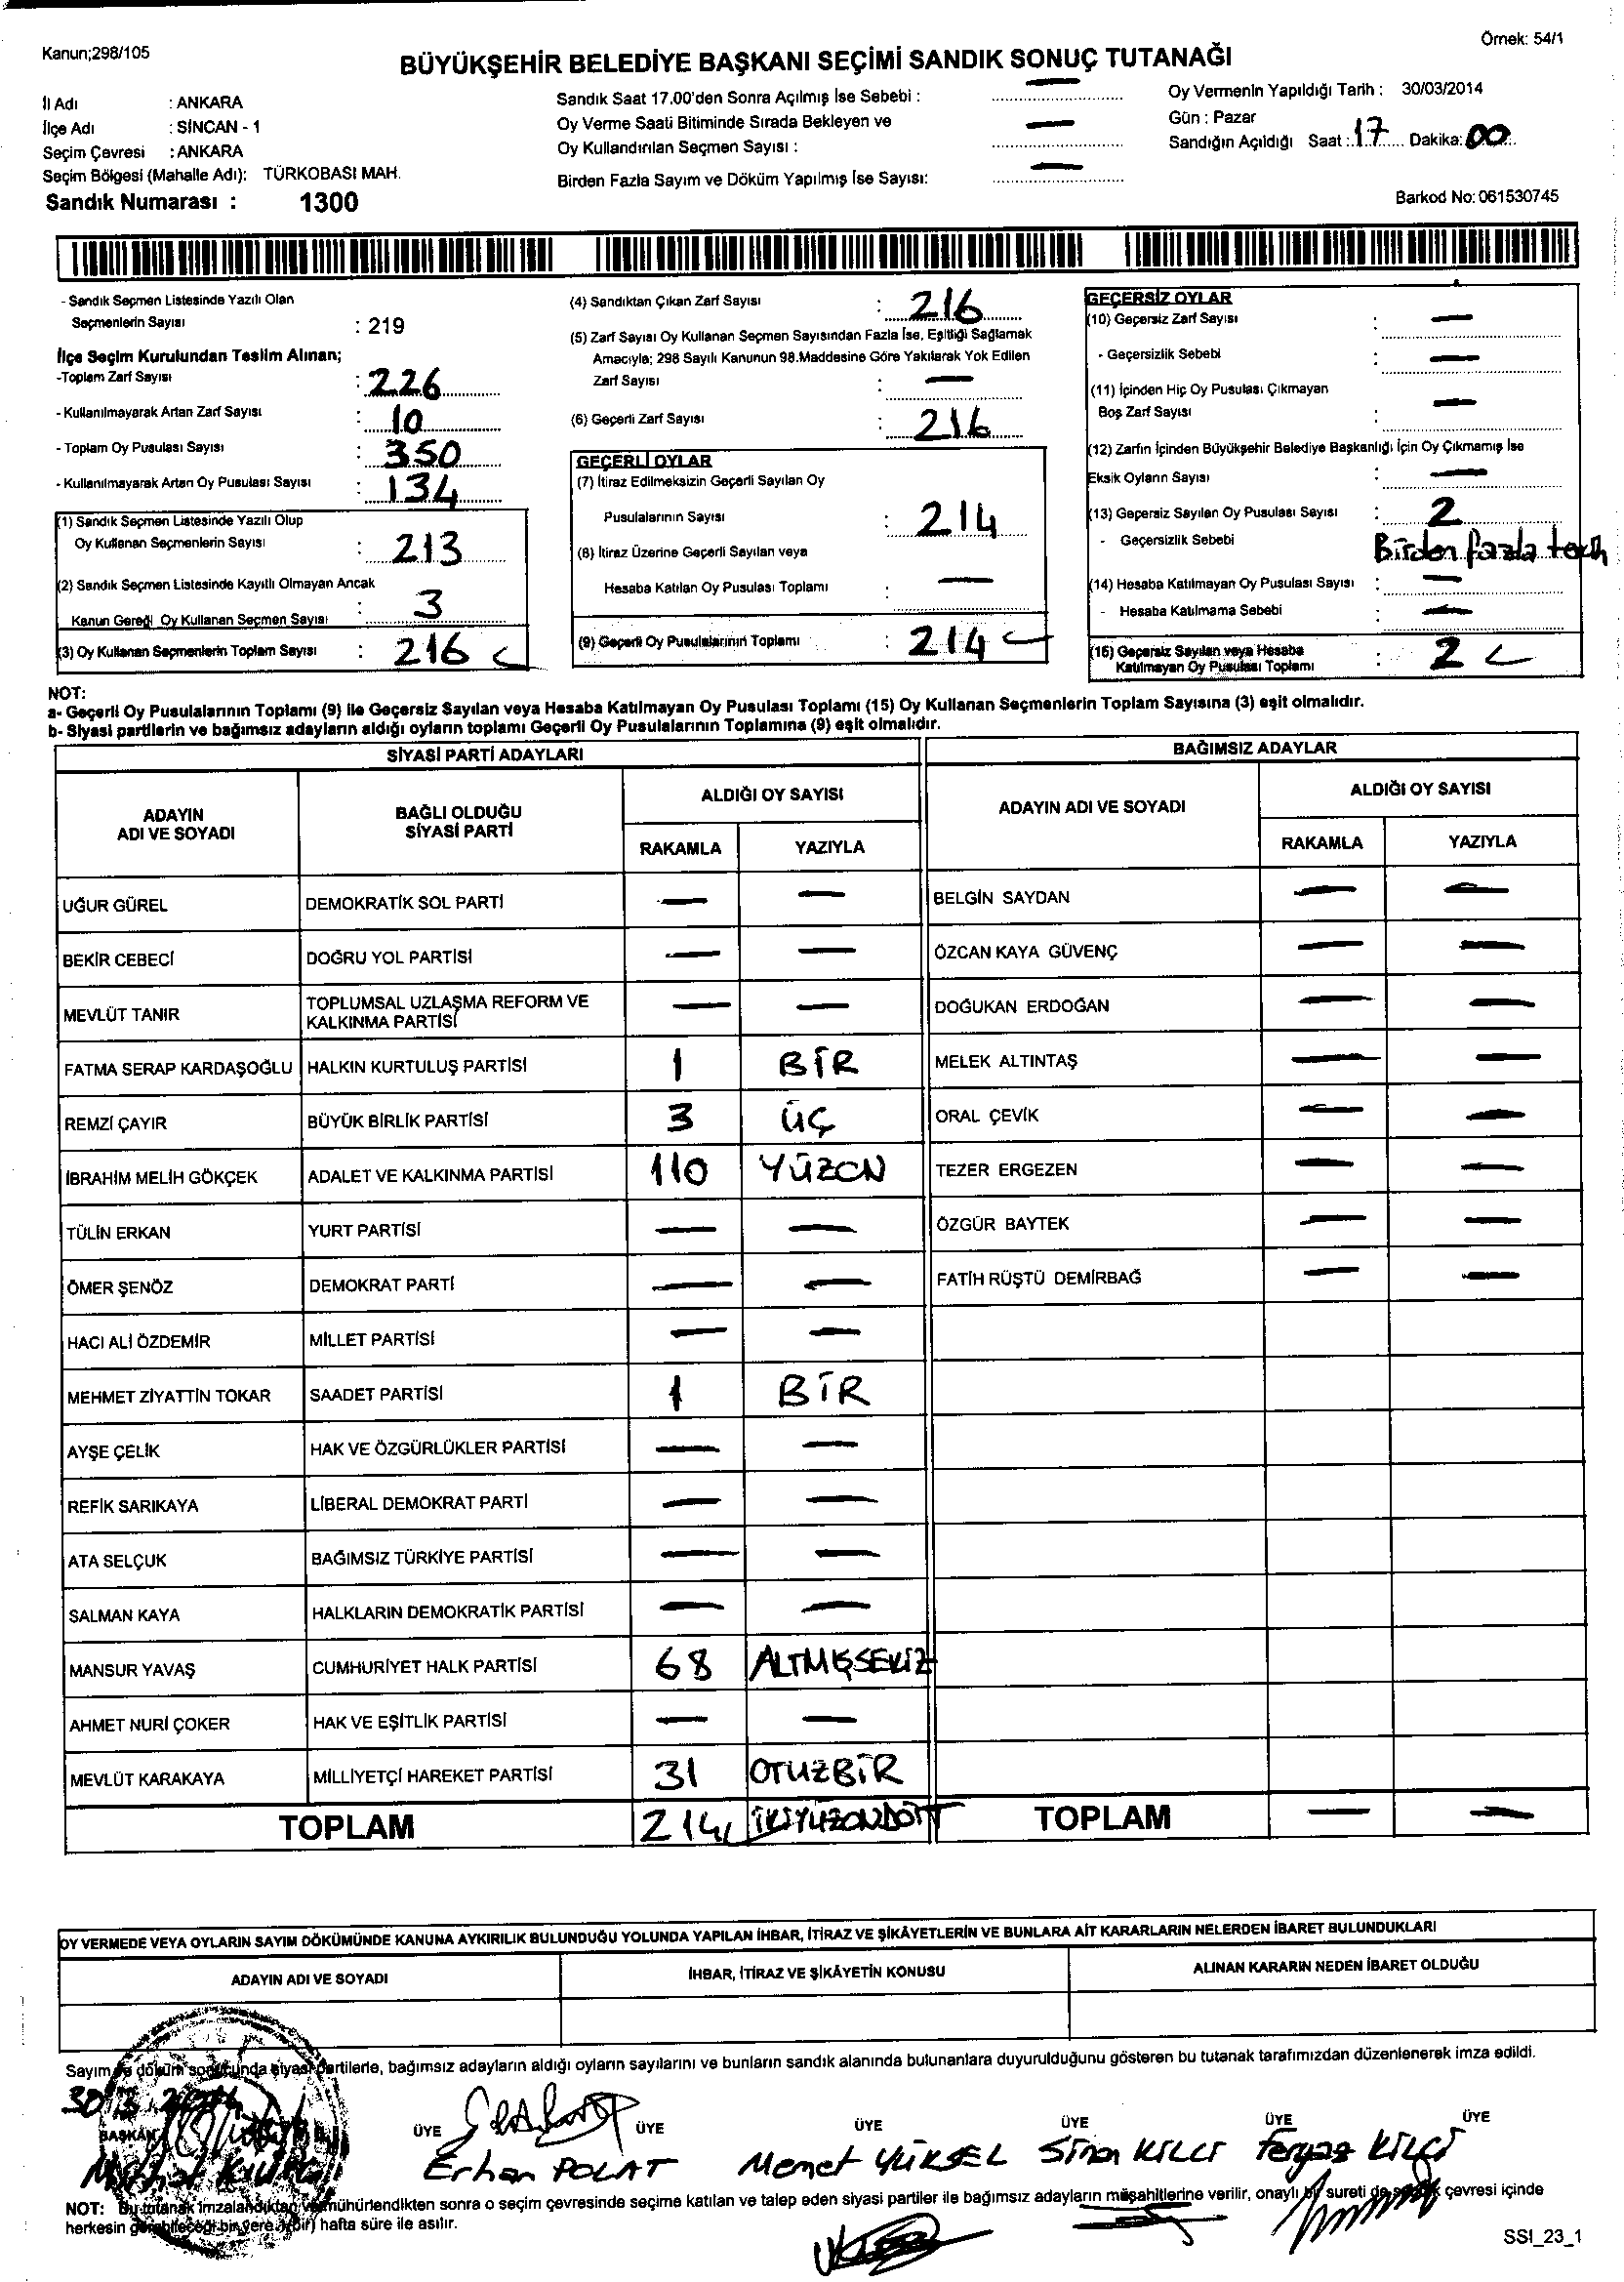 Kanun;298/105
Örnek: 54/1
BÜYÜKŞEHİR BELEDİYE BAŞKANI SEÇİMİ SANDIK SONUÇ TUTANAĞI
İl Adı : ANKARA
İlçe Adı : SİNCAN - 1
Seçim Çevresi : ANKARA
Seçim Bölgesi (Mahalle Adı): TÜRKOBASI MAH.
Sandık Numarası : 1300
Sandık Saat 17.00'den Sonra Açılmış İse Sebebi : —
Oy Verme Saati Bitiminde Sırada Bekleyen ve
Oy Kullandırılan Seçmen Sayısı : —
Birden Fazla Sayım ve Döküm Yapılmış İse Sayısı: —
Oy Vermenin Yapıldığı Tarih : 30/03/2014
Gün : Pazar
Sandığın Açıldığı Saat : 17 Dakika: 00
Barkod No: 061530745
- Sandık Seçmen Listesinde Yazılı Olan
Seçmenlerin Sayısı : 219
İlçe Seçim Kurulundan Teslim Alınan;
-Toplam Zarf Sayısı : 226
- Kullanılmayarak Artan Zarf Sayısı : 10
- Toplam Oy Pusulası Sayısı : 350
- Kullanılmayarak Artan Oy Pusulası Sayısı : 134
(1) Sandık Seçmen Listesinde Yazılı Olup
Oy Kullanan Seçmenlerin Sayısı : 213
(2) Sandık Seçmen Listesinde Kayıtlı Olmayan Ancak
Kanun Gereği Oy Kullanan Seçmen Sayısı : 3
(3) Oy Kullanan Seçmenlerin Toplam Sayısı : 216
(4) Sandıktan Çıkan Zarf Sayısı : 216
(5) Zarf Sayısı Oy Kullanan Seçmen Sayısından Fazla İse, Eşitliği Sağlamak
Amacıyla; 298 Sayılı Kanunun 98.Maddesine Göre Yakılarak Yok Edilen
Zarf Sayısı : —
(6) Geçerli Zarf Sayısı : 216
GEÇERLİ OYLAR
(7) İtiraz Edilmeksizin Geçerli Sayılan Oy
Pusulalarının Sayısı : 214
(8) İtiraz Üzerine Geçerli Sayılan veya
Hesaba Katılan Oy Pusulası Toplamı : —
(9) Geçerli Oy Pusulalarının Toplamı : 214
GEÇERSİZ OYLAR
(10) Geçersiz Zarf Sayısı : —
- Geçersizlik Sebebi : —
(11) İçinden Hiç Oy Pusulası Çıkmayan
Boş Zarf Sayısı : —
(12) Zarfın İçinden Büyükşehir Belediye Başkanlığı İçin Oy Çıkmamış İse
Eksik Oyların Sayısı : —
(13) Geçersiz Sayılan Oy Pusulası Sayısı : 2
- Geçersizlik Sebebi : Birden fazla tercih
(14) Hesaba Katılmayan Oy Pusulası Sayısı : —
- Hesaba Katılmama Sebebi : —
(15) Geçersiz Sayılan veya Hesaba
Katılmayan Oy Pusulası Toplamı : 2
NOT:
a- Geçerli Oy Pusulalarının Toplamı (9) ile Geçersiz Sayılan veya Hesaba Katılmayan Oy Pusulası Toplamı (15) Oy Kullanan Seçmenlerin Toplam Sayısına (3) eşit olmalıdır.
b- Siyasi partilerin ve bağımsız adayların aldığı oyların toplamı Geçerli Oy Pusulalarının Toplamına (9) eşit olmalıdır.
SİYASİ PARTİ ADAYLARI
ADAYIN ADI VE SOYADI
BAĞLI OLDUĞU SİYASİ PARTİ
ALDIĞI OY SAYISI
RAKAMLA YAZIYLA
UĞUR GÜREL DEMOKRATİK SOL PARTİ — —
BEKİR CEBECİ DOĞRU YOL PARTİSİ — —
MEVLÜT TANIR TOPLUMSAL UZLAŞMA REFORM VE KALKINMA PARTİSİ — —
FATMA SERAP KARDAŞOĞLU HALKIN KURTULUŞ PARTİSİ 1 BİR
REMZİ ÇAYIR BÜYÜK BİRLİK PARTİSİ 3 ÜÇ
İBRAHİM MELİH GÖKÇEK ADALET VE KALKINMA PARTİSİ 110 YÜZON
TÜLİN ERKAN YURT PARTİSİ — —
ÖMER ŞENÖZ DEMOKRAT PARTİ — —
HACI ALİ ÖZDEMİR MİLLET PARTİSİ — —
MEHMET ZİYATTİN TOKAR SAADET PARTİSİ 1 BİR
AYŞE ÇELİK HAK VE ÖZGÜRLÜKLER PARTİSİ — —
REFİK SARIKAYA LİBERAL DEMOKRAT PARTİ — —
ATA SELÇUK BAĞIMSIZ TÜRKİYE PARTİSİ — —
SALMAN KAYA HALKLARIN DEMOKRATİK PARTİSİ — —
MANSUR YAVAŞ CUMHURİYET HALK PARTİSİ 68 ALTMIŞSEKİZ
AHMET NURİ ÇOKER HAK VE EŞİTLİK PARTİSİ — —
MEVLÜT KARAKAYA MİLLİYETÇİ HAREKET PARTİSİ 31 OTUZBİR
TOPLAM 214 İKİYÜZONDÖRT
BAĞIMSIZ ADAYLAR
ADAYIN ADI VE SOYADI
ALDIĞI OY SAYISI
RAKAMLA YAZIYLA
BELGİN SAYDAN — —
ÖZCAN KAYA GÜVENÇ — —
DOĞUKAN ERDOĞAN — —
MELEK ALTINTAŞ — —
ORAL ÇEVİK — —
TEZER ERGEZEN — —
ÖZGÜR BAYTEK — —
FATİH RÜŞTÜ DEMİRBAĞ — —
TOPLAM — —
OY VERMEDE VEYA OYLARIN SAYIM DÖKÜMÜNDE KANUNA AYKIRILIK BULUNDUĞU YOLUNDA YAPILAN İHBAR, İTİRAZ VE ŞİKÂYETLERİN VE BUNLARA AİT KARARLARIN NELERDEN İBARET BULUNDUKLARI
ADAYIN ADI VE SOYADI
İHBAR, İTİRAZ VE ŞİKÂYETİN KONUSU
ALINAN KARARIN NEDEN İBARET OLDUĞU
Sayım ve döküm sonucunda siyasi partilerle, bağımsız adayların aldığı oyların sayılarını ve bunların sandık alanında bulunanlara duyurulduğunu gösteren bu tutanak tarafımızdan düzenlenerek imza edildi.
30.3.2014
BAŞKAN ÜYE ÜYE ÜYE ÜYE ÜYE ÜYE
Erhan POLAT Memet YÜKSEL Sinan KILCI Feryaz KILÇI
NOT: Bu tutanak imzalandıktan ve mühürlendikten sonra o seçim çevresinde seçime katılan ve talep eden siyasi partiler ile bağımsız adayların müşahitlerine verilir, onaylı bir sureti de sandık çevresi içinde
herkesin görebileceği bir yere (bir) hafta süre ile asılır.
SSI_23_1